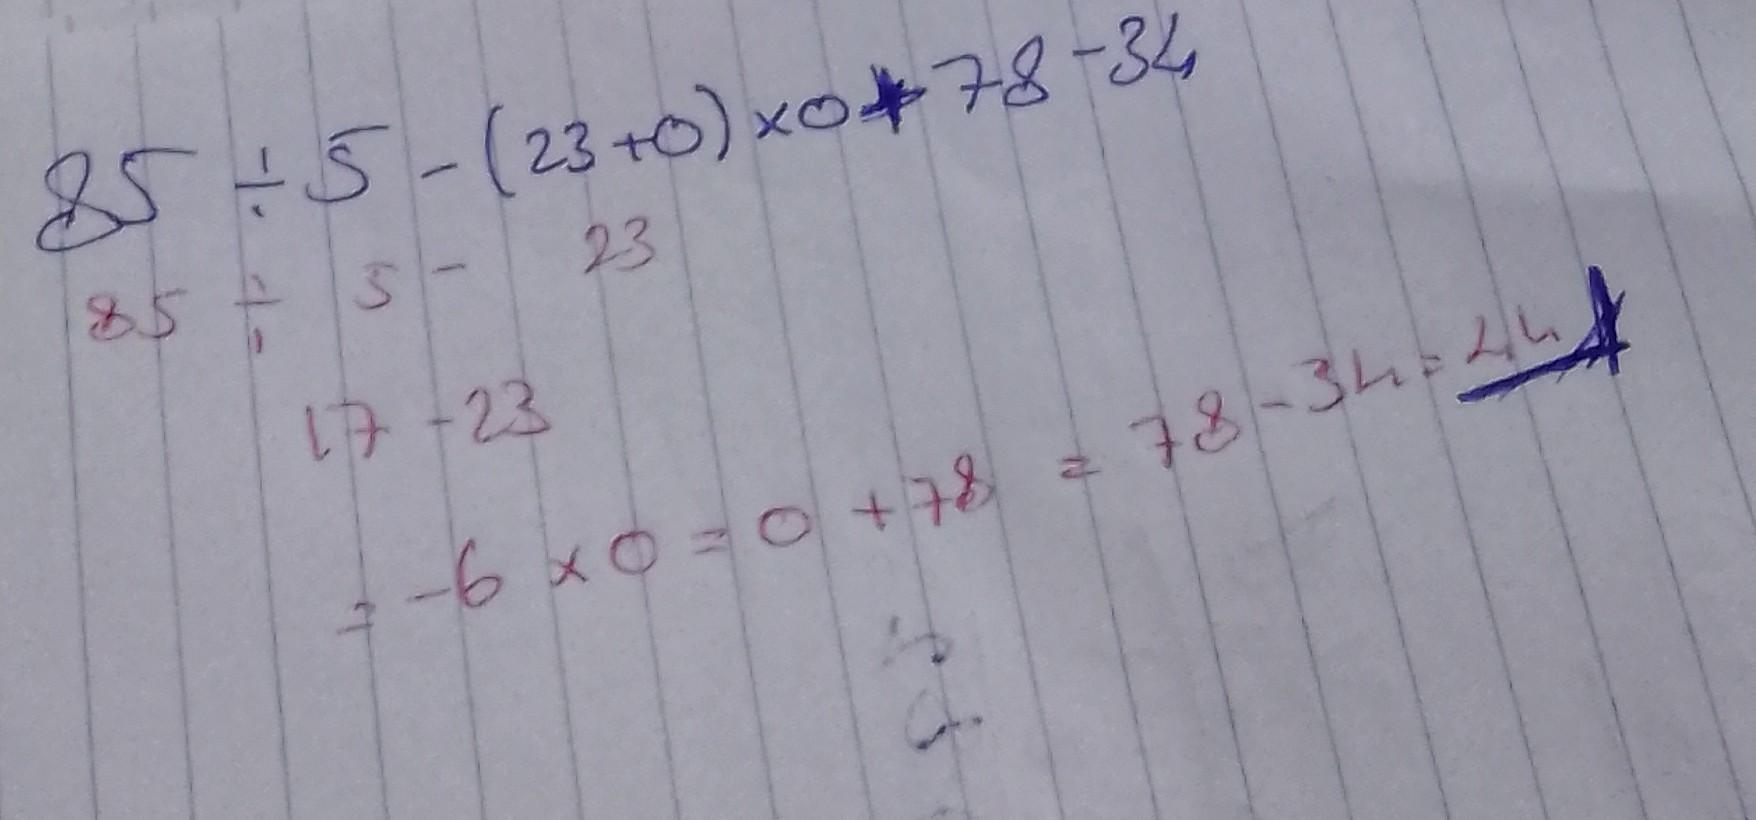 85 ÷ 5 - (23+0) ×0+78-34
85 ÷ 5 - 23
17 - 23
= -6 × 0 = 0 + 78 = 78 - 34 = 44